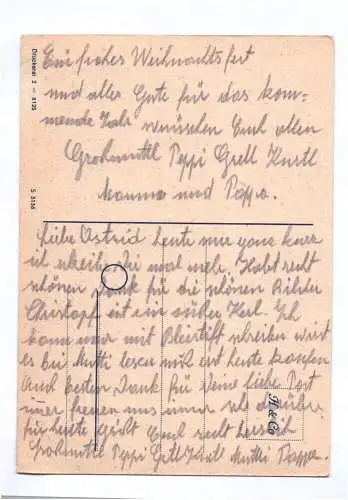 Ein frohes Weihnachtsfest
und alles Gute für das kom-
mende Jahr wünschen Euch allen
Großmuttl Peppi Gretl Kurtl
Mamma und Pappa.
Liebe Astrid heute nur ganz kurz
ich schreibe Dir mal mehr. Habt recht
schönen Dank für die schönen Bilder
Christoph ist ein süßer Kerl. Ich
kann nur mit Bleistift schreiben wird
es Dir Mutti lesen muß erst heute kaufen
Auch besten Dank für Deine liebe Post
wir freuen uns immer sehr darüber.
für heute grüßt Euch recht herzlich
Großmuttl Peppi Gretl Kurtl Mutti Pappa.
Druckerei 2 - 8125
S 3136
H & Co